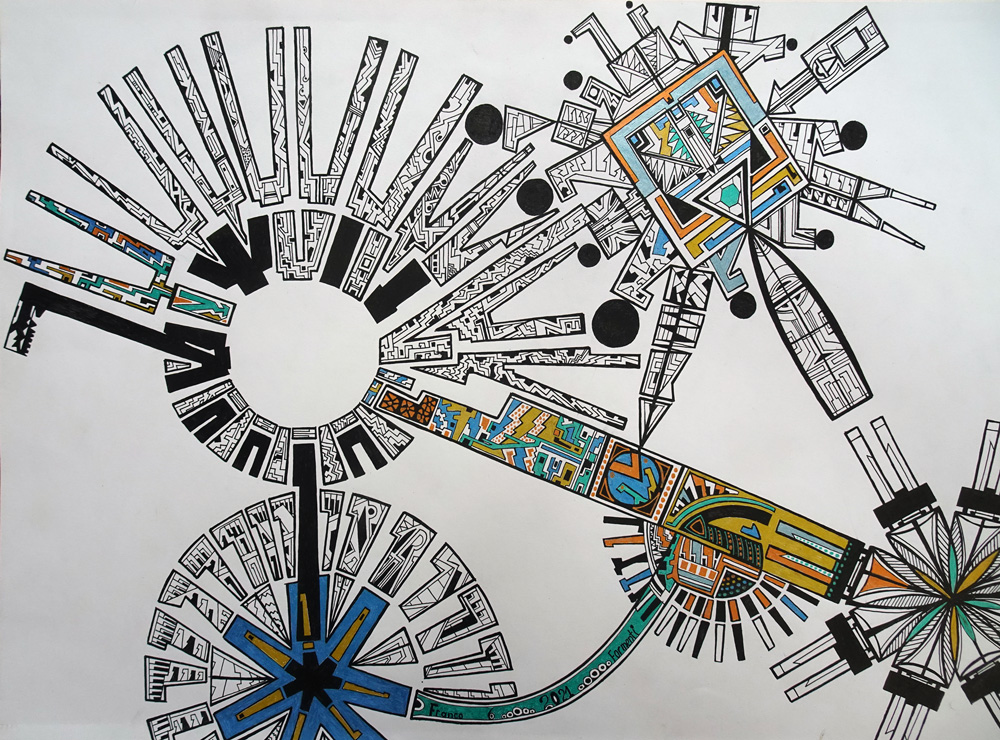 Franco 6 2021 Formenti